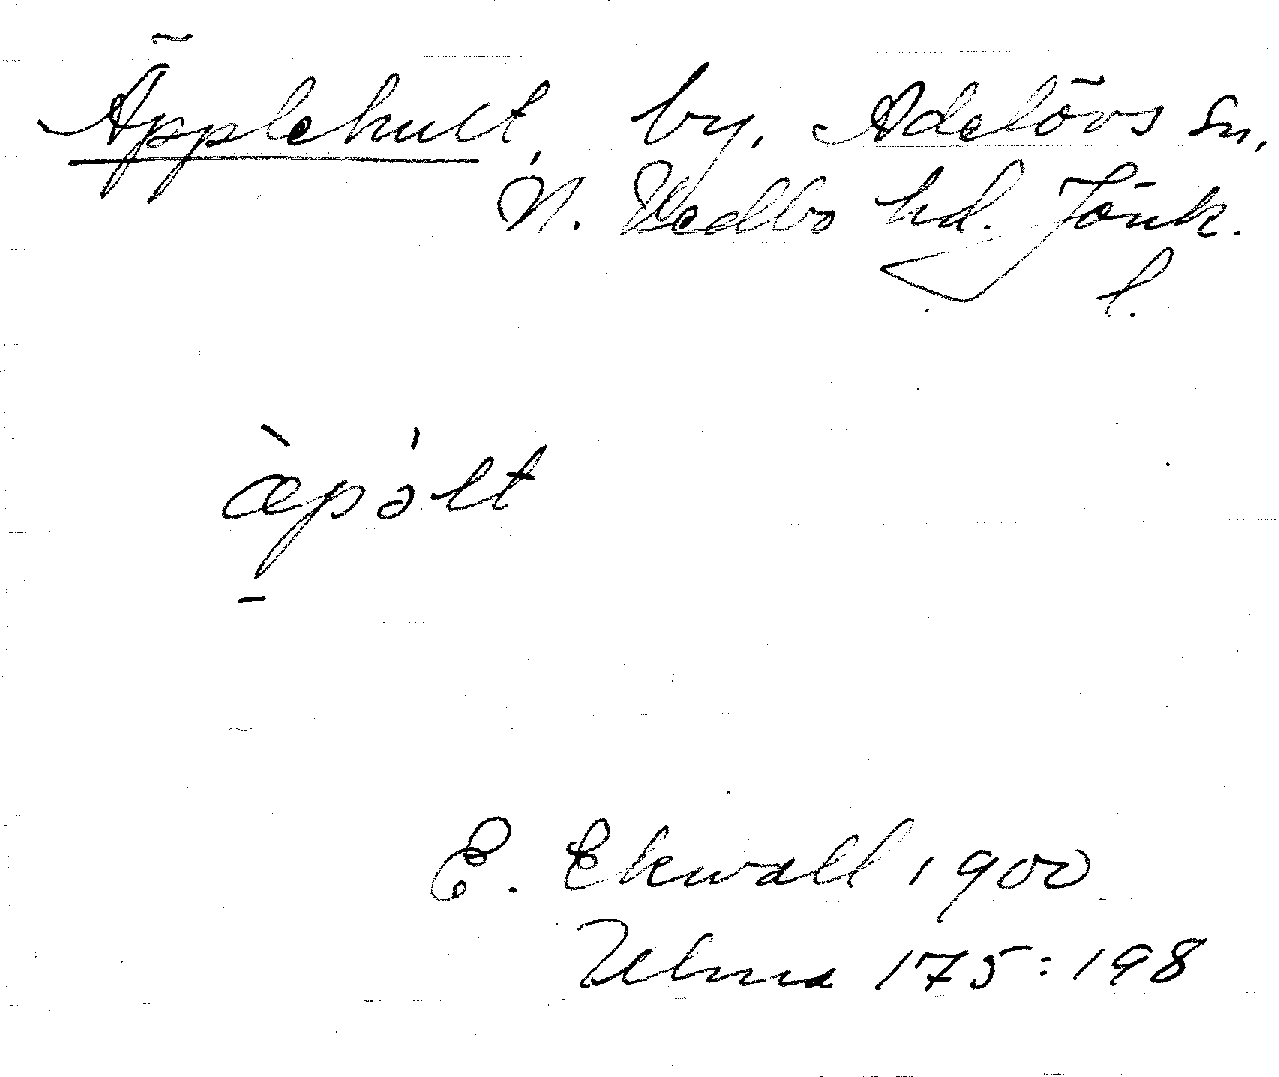 Äpplehult, by, Adelövs sn,
N. Vedbo hd. Jönk.
l.
æ̀pə́lt
E. Ekwall 1900
Ulma 175:198